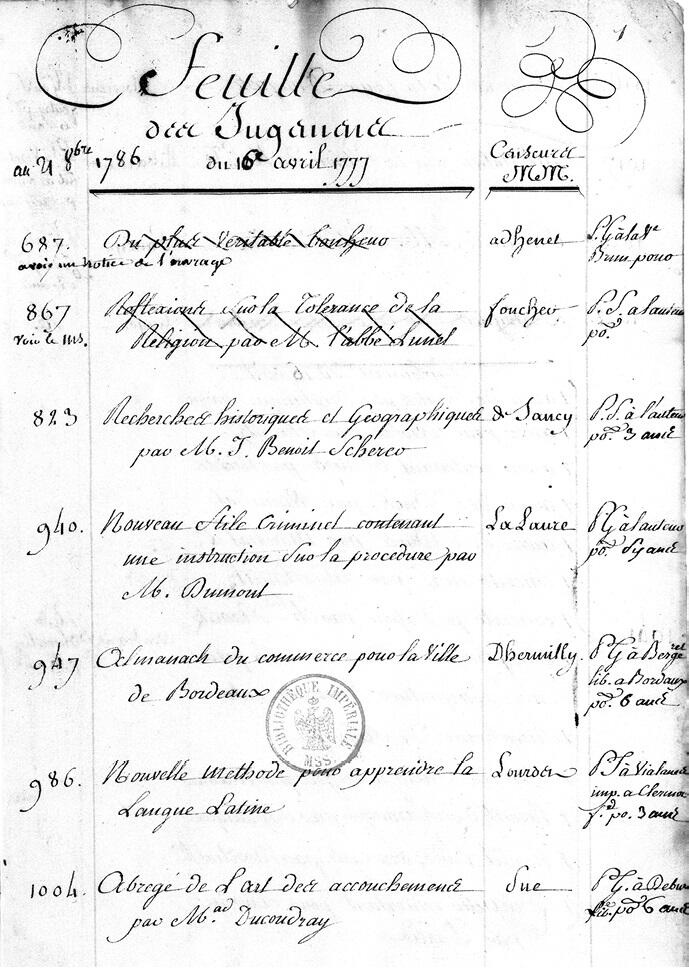 1
Feuille
des Jugemens
au 21 8bre 1786 du 16e avril 1777
Censeurs
MM.
687. Du plus veritable bonheur adhenet P. G. à la Ve
avoir un notice de l'ouvrage
867 Reflexions sur la Tolerance de la foucher P. S. a lauteur
voir le ms. Religion par M. l'abbé Lunel po.
823 Recherches historiques et Geographiques de Sancy P. S. à l'auteur
par M. J. Benoit Scherer po. 3 ans
940. Nouveau stile Criminel contenant La Laure P G à lauteur
une instruction sur la procedure par po.
M. Dumont
947 Almanach du commerce pour la Ville Dhermilly P G à Bergeret
de Bordeaux lib. a Bordaux
po. 6 ans
BIBLIOTHÈQUE IMPÉRIALE
MSS
986. Nouvelle methode pour apprendre la Lourdet
Langue Latine imp. a Clermo
fd po. 3 ans
1004. Abregé de L'art des accouchemens Sue P G. à Debur
par Mad Ducoudray lib. po. 6 ans